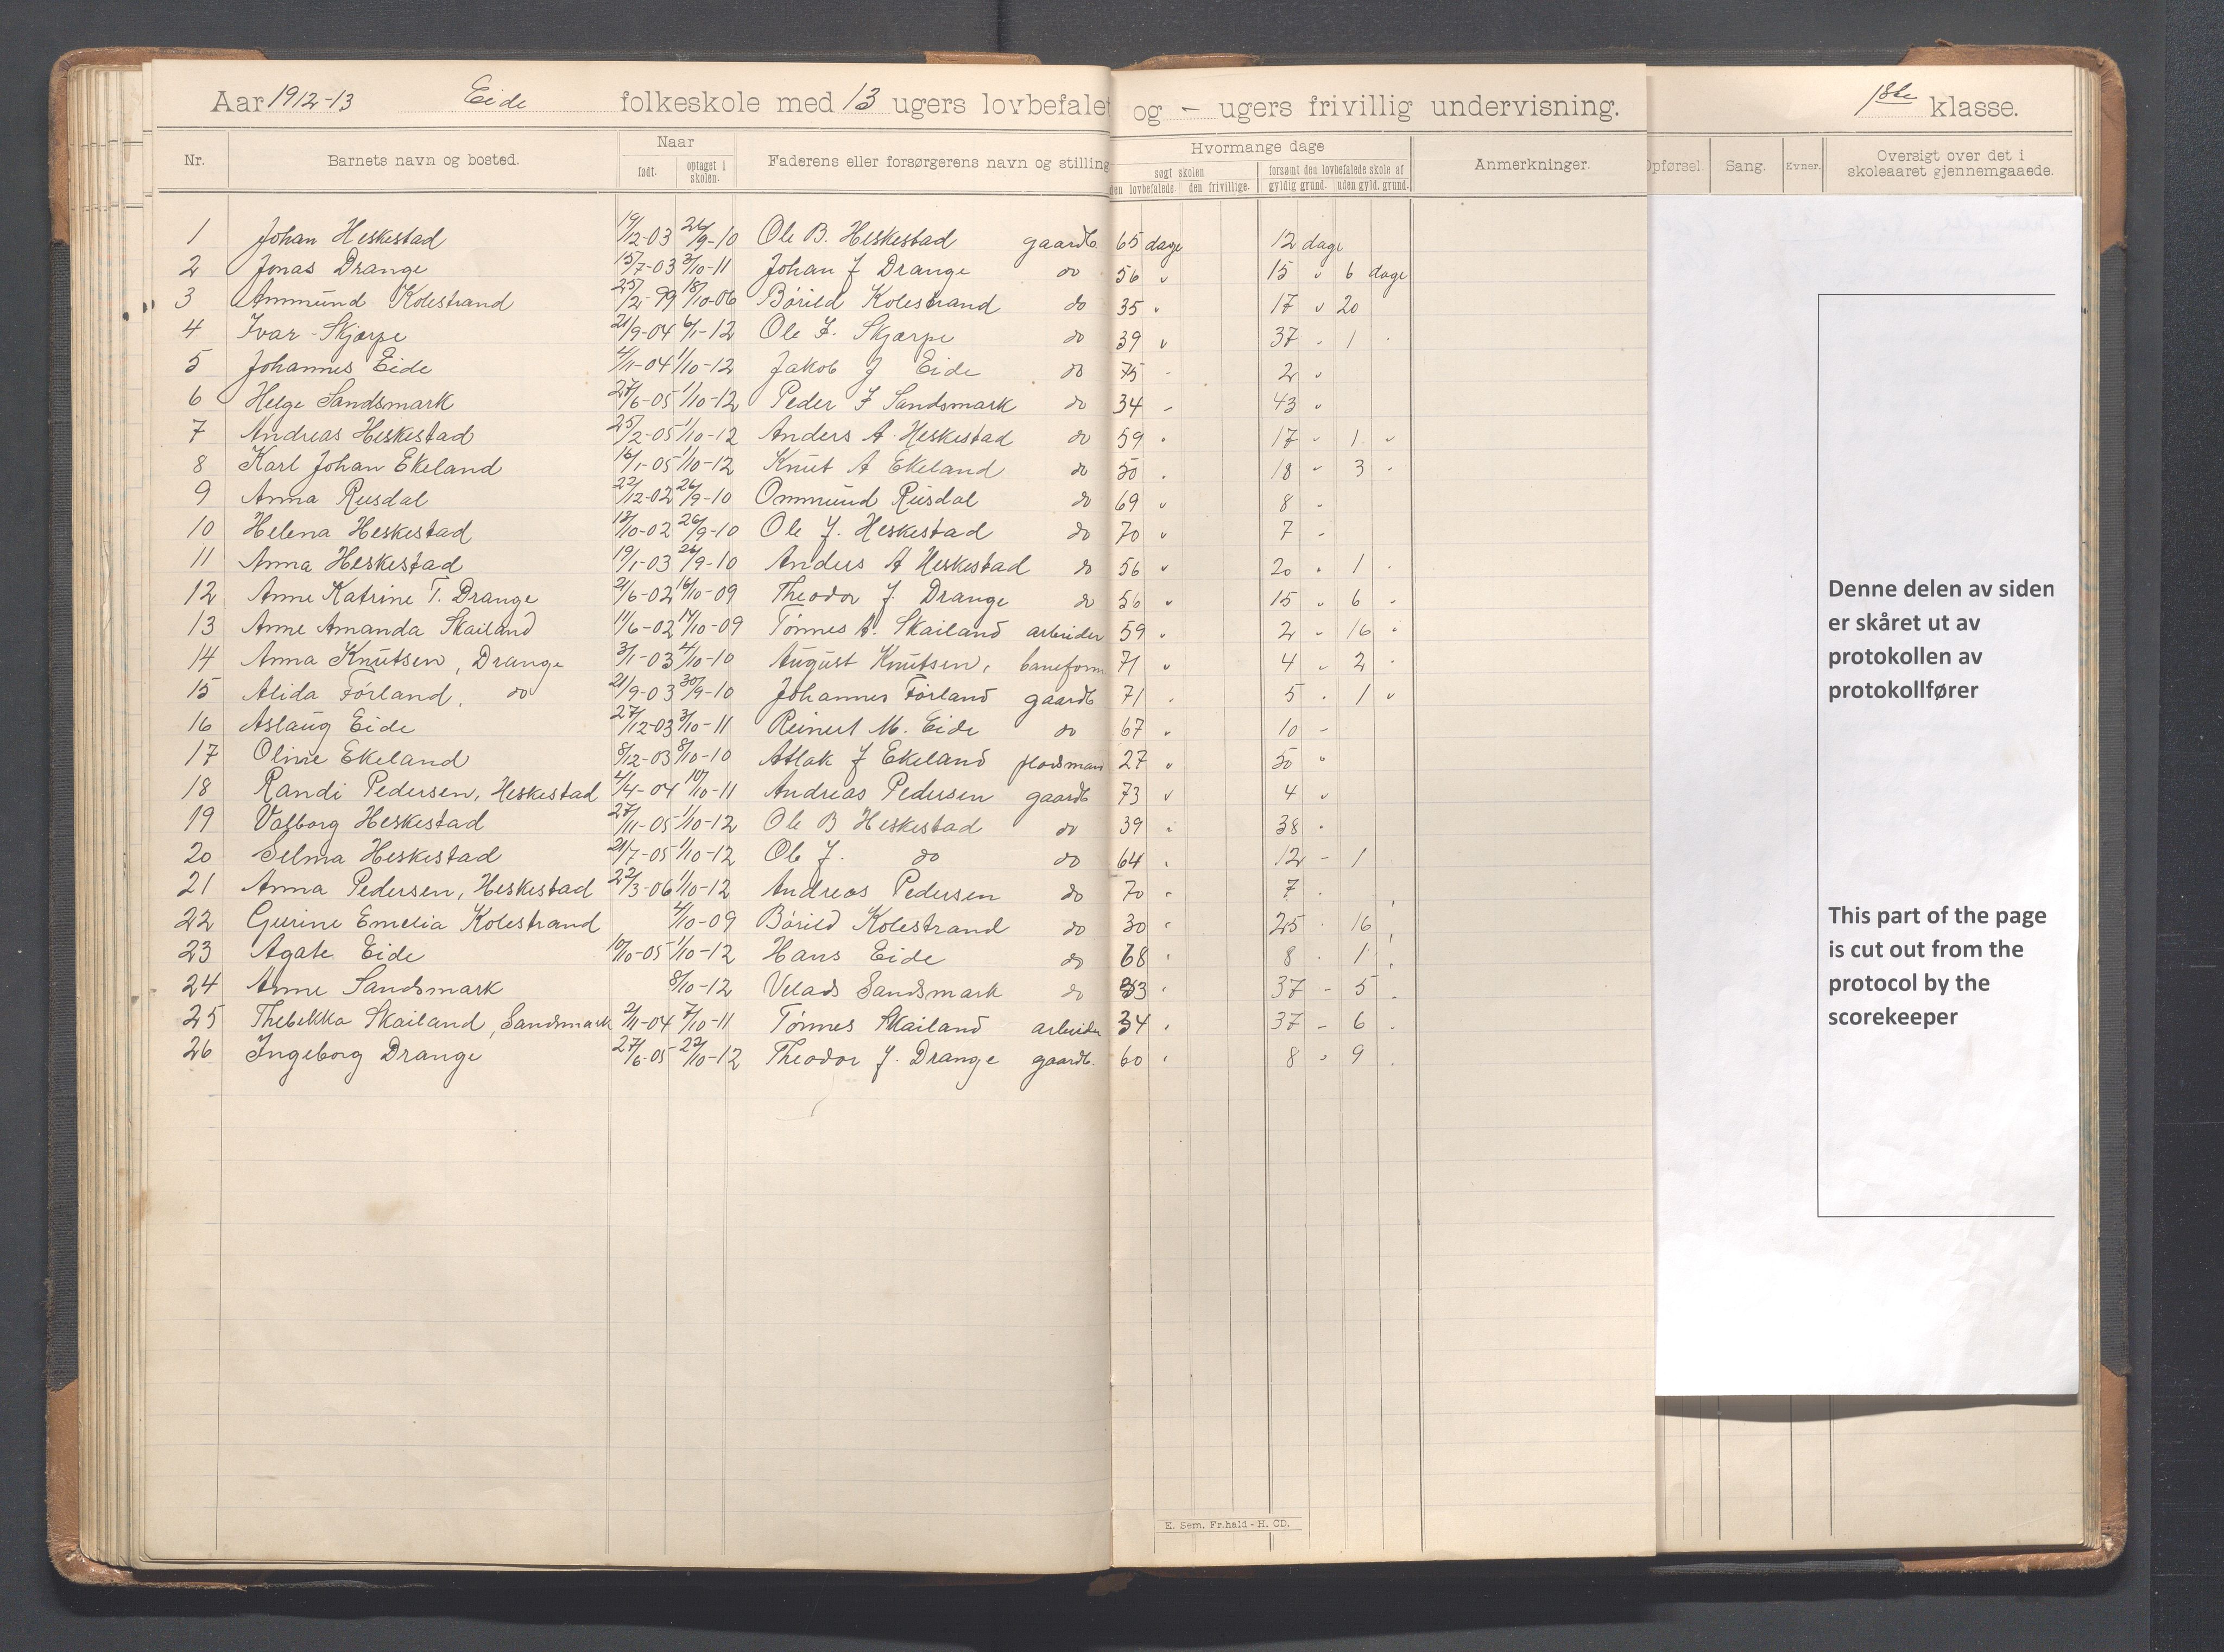 Aar 1912-13 Eide folkeskole med 13 ugers lovbefalet og - ugers frivillig undervisning. 1ste klasse.
Nr. Barnets navn og bosted. Naar født. optaget i skolen. Faderens eller forsørgerens navn og stilling Hvormange dage søgt skolen den lovbefalede. den frivillige. forsømt den lovbefalede skole af gyldig grund. uden gyld. grund. Anmerkninger. Opførsel. Sang. Evner. Oversigt over det i skoleaaret gjennemgaaede.
1 Johan Heskestad 19/12-03 26/9-10 Ole B. Heskestad gaardb 65 dage 12 dage
2 Jonas Drange 15/7-03 3/10-11 Johan J Drange do 56 " 15 " 6 dage
3 Ammund Kolestrand 25/2-99 18/10-06 Bårild Kolestrand do 35 " 17 " 20
4 Ivar Skjærpe 21/9-04 6/1-12 Ole F. Skjærpe do 39 " 37 - 1 "
5 Johannes Eide 4/11-04 1/10-12 Jakob J Eide do 75 - 2 "
6 Helge Sandsmark 27/6-05 1/10-12 Peder F Sandsmark do 34 - 43 "
7 Andreas Heskestad 25/2-05 1/10-12 Anders A. Heskestad do 59 " 17 " 1 "
8 Karl Johan Ekeland 16/1-05 1/10-12 Knut A Ekeland do 50 " 18 " 3 "
9 Anna Rusdal 22/12-02 26/9-10 Ommund Rusdal do 69 " 8 "
10 Helena Heskestad 13/10-02 26/9-10 Ole J. Heskestad do 70 " 7 -
11 Anna Heskestad 19/1-03 26/9-10 Anders A Heskestad do 56 " 20 " 1 "
12 Anne Katrine T. Drange 21/6-02 16/10-09 Theodor J. Drange do 56 " 15 " 6 "
13 Anne Amanda Skailand 11/6-02 14/10-09 Tönnes A. Skailand arbeider 59 " 2 " 16 "
14 Anna Knutsen, Drange 3/1-03 4/10-10 August Knutsen, baneform 71 " 4 " 2 "
15 Alida Förland, do 21/9-03 30/9-10 Johannes Förland gaardb 71 " 5 " 1 "
16 Aslaug Eide 27/12-03 3/10-11 Reinert M. Eide do 67 " 10 -
17 Oline Ekeland 8/12-03 8/10-10 Atlak J Ekeland pladsmand 27 " 50 "
18 Randi Pedersen, Heskestad 4/4-04 10/10-11 Andreas Pedersen gaardb 73 " 4 "
19 Valborg Heskestad 27/11-05 1/10-12 Ole B Heskestad do 39 " 38 "
20 Selma Heskestad 21/7-05 1/10-12 Ole J. do do 64 " 12 - 1
21 Anna Pedersen, Heskestad 22/3-06 1/10-12 Andreas Pedersen do 70 " 7 "
22 Gurine Emelia Kolestrand 4/10-09 Bårild Kolestrand do 30 " 25 " 16 "
23 Agate Eide 10/10-05 1/10-12 Hans Eide do 68 " 8 " 1 "
24 Anne Sandsmark 8/10-12 Velads Sandsmark do 33 " 37 - 5 "
25 Thebekka Skailand, Sandsmark 2/11-04 7/10-11 Tönnes Skailand arbeider 34 " 37 - 6 "
26 Ingeborg Drange 27/6-05 22/10-12 Theodor J. Drange gaardb. 60 " 8 " 9 "
E. Sem, Fr.hald - H. CD.
Denne delen av siden
er skåret ut av
protokollen av
protokollfører
This part of the page
is cut out from the
protocol by the
scorekeeper